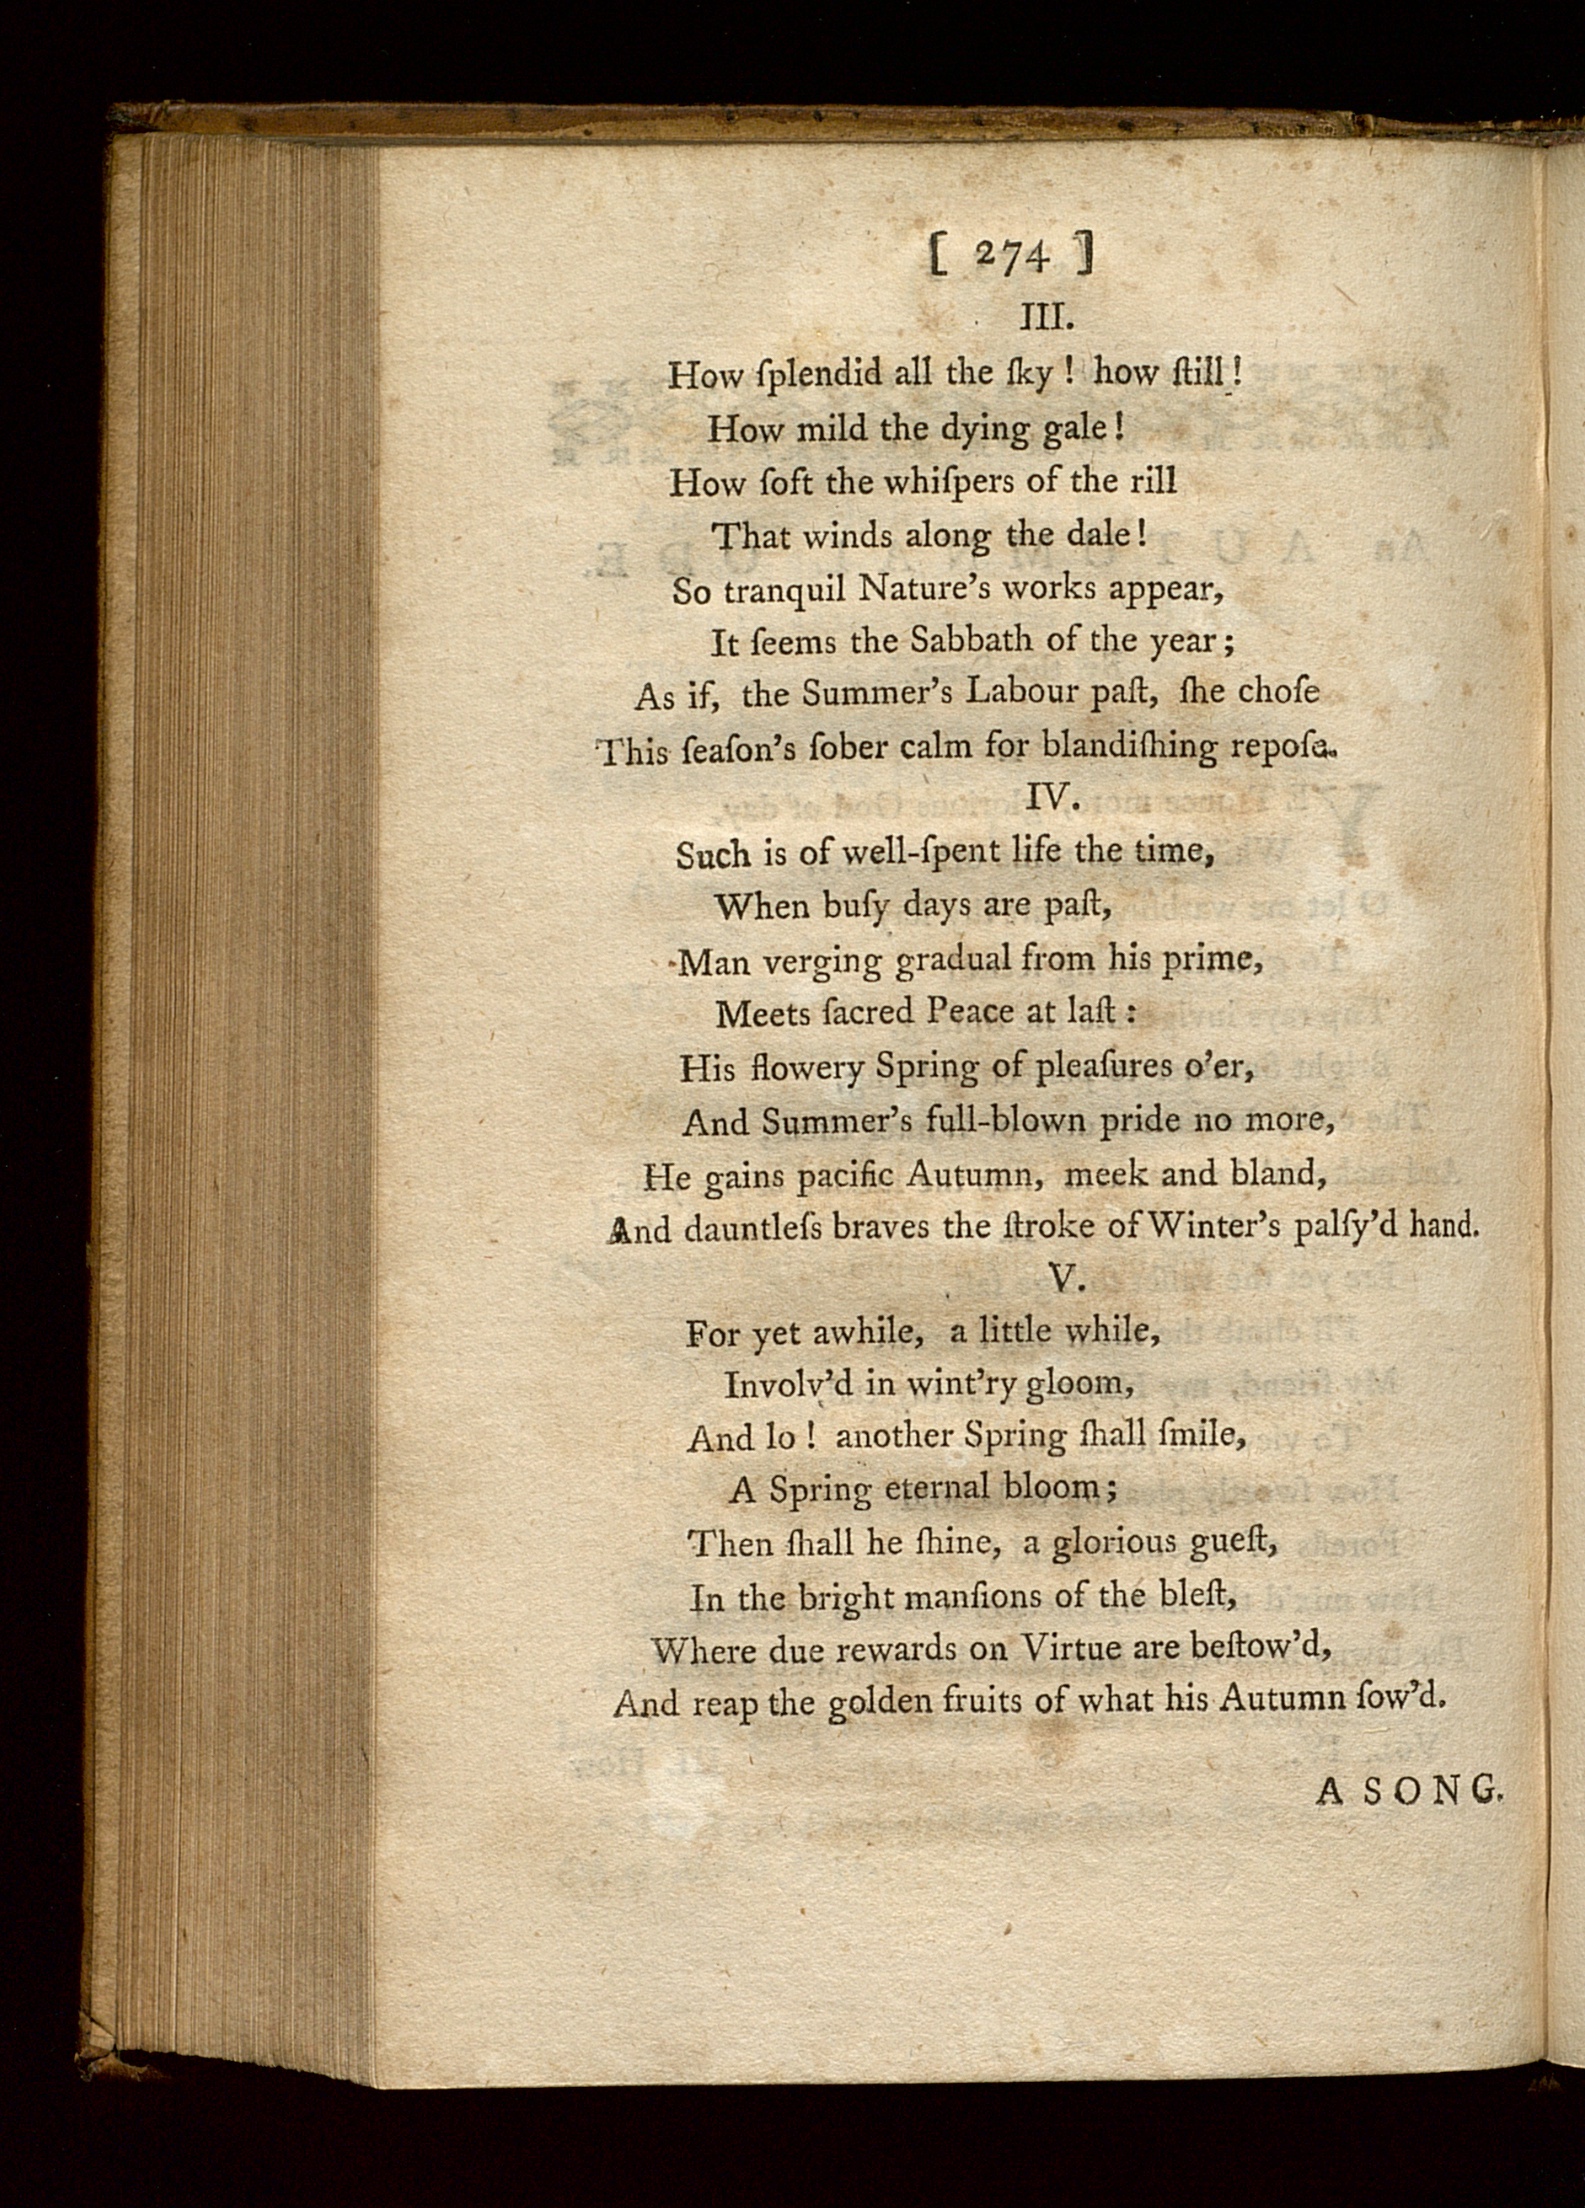 [ 274 ]
III.
How ſplendid all the ſky ! how ſtill !
How mild the dying gale !
How ſoft the whiſpers of the rill
That winds along the dale !
So tranquil Nature's works appear,
It ſeems the Sabbath of the year ;
As if, the Summer's Labour paſt, ſhe choſe
This ſeaſon's ſober calm for blandiſhing repoſe.
IV.
Such is of well-ſpent life the time,
When buſy days are paſt,
Man verging gradual from his prime,
Meets ſacred Peace at laſt :
His flowery Spring of pleaſures o'er,
And Summer's full-blown pride no more,
He gains pacific Autumn, meek and bland,
And dauntleſs braves the ſtroke of Winter's palſy'd hand.
V.
For yet awhile, a little while,
Involv'd in wint'ry gloom,
And lo ! another Spring ſhall ſmile,
A Spring eternal bloom ;
Then ſhall he ſhine, a glorious gueſt,
In the bright manſions of the bleſt,
Where due rewards on Virtue are beſtow'd,
And reap the golden fruits of what his Autumn ſow'd.
A SONG.